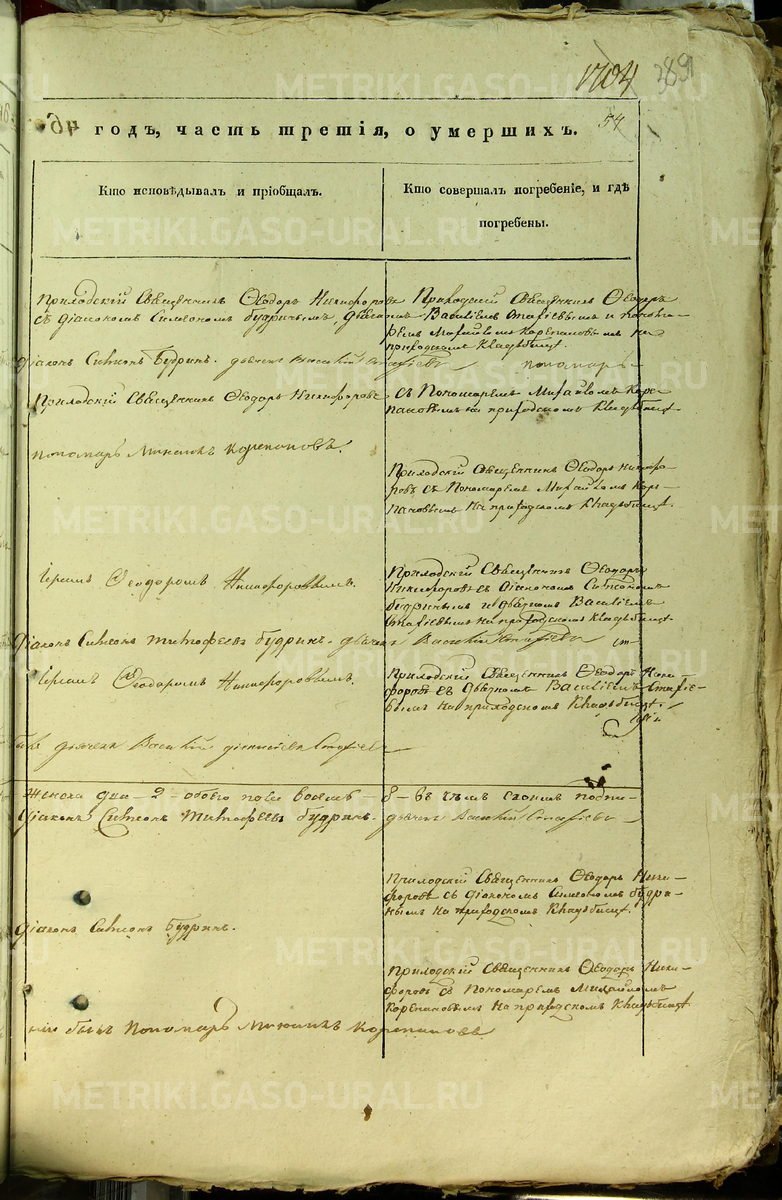 1704
289
46 годъ, часть третія, о умершихъ.
54
Кто исповѣдывалъ и пріобщалъ.
Кто совершалъ погребеніе, и гдѣ
погребены.
Приходскій Священникъ Ѳеодоръ Никифоровъ
съ діакономъ Симеономъ Будринымъ,
Приходскій Священникъ Ѳеодоръ
Василіемъ и понома-
ремъ Михайломъ Корепановымъ на
приходскомъ кладбищѣ.
діаконъ Симеонъ Будринъ. дьячекъ Василій
пономарь
Приходскій Священникъ Ѳеодоръ Никифоровъ
съ Пономаремъ Михайломъ Коре-
пановымъ на приходскомъ кладбищѣ.
пономарь Михаилъ Корепановъ.
Приходскій Священникъ Ѳеодоръ Никифо-
ровъ съ Пономаремъ Михайломъ Коре-
пановымъ на приходскомъ кладбищѣ.
Іереемъ Ѳеодоромъ Никифоровымъ.
Приходскій Священникъ Ѳеодоръ
Никифоровъ съ діакономъ Симеономъ
Будринымъ и дьячкомъ Василіемъ
на приходскомъ кладбищѣ
діаконъ Симеонъ Тимофеевъ Будринъ. дьячекъ Василій
Іереемъ Ѳеодоромъ Никифоровымъ.
Приходскій Священникъ Ѳеодоръ Ники-
форовъ съ дьячкомъ Василіемъ
на приходскомъ кладбищѣ.
дьячекъ Василій
женска два - 2 - обоего пола восемь - 8 - въ чемъ и подпи-
діаконъ Симеонъ Тимофеевъ Будринъ. дьячекъ Василій
Приходскій Священникъ Ѳеодоръ Ники-
форовъ съ діакономъ Симеономъ Будри-
нымъ на приходскомъ кладбищѣ.
діаконъ Симеонъ Будринъ.
Приходскій Священникъ Ѳеодоръ Ники-
форовъ съ Пономаремъ Михайломъ
Корепановымъ на приходскомъ кладбищѣ
былъ Пономарь Михаилъ Корепановъ
METRIKI.GASO-URAL.RU